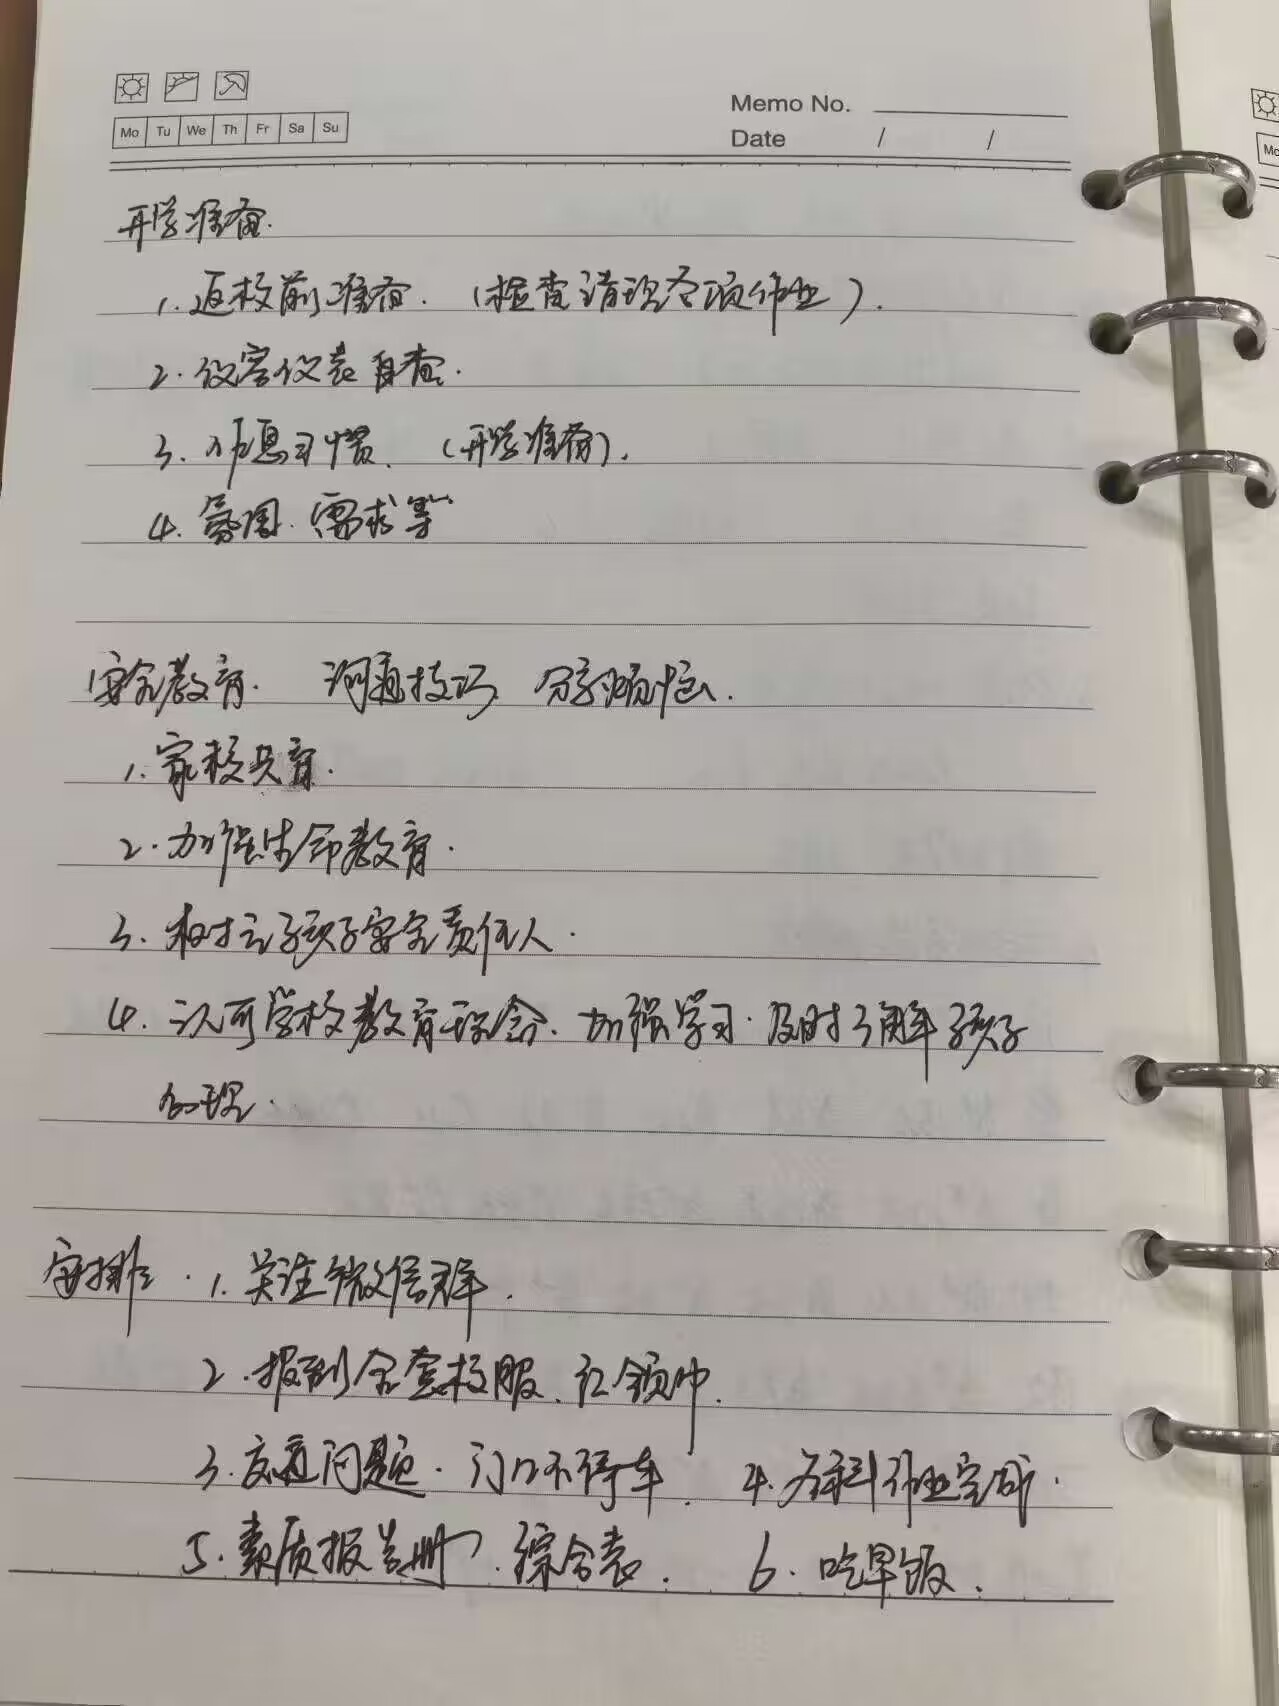 Memo No.
Mo Tu We Th Fr Sa Su
Date / /
开学准备.
1. 返校前准备. (检查清理各项作业).
2. 仪容仪表自查.
3. 作息习惯. (开学准备).
4. 氛围. 需求等
安全教育. 沟通技巧 分享烦恼.
1. 家校共育.
2. 加强生命教育.
3. 树立孩子安全责任人.
4. 认可学校教育理念. 加强学习. 及时了解孩子
心理.
安排. 1. 关注微信群.
2. 报到全套校服. 红领巾.
3. 交通问题. 门口不停车. 4. 各科作业完成.
5. 素质报告册. 综合表. 6. 吃早饭.